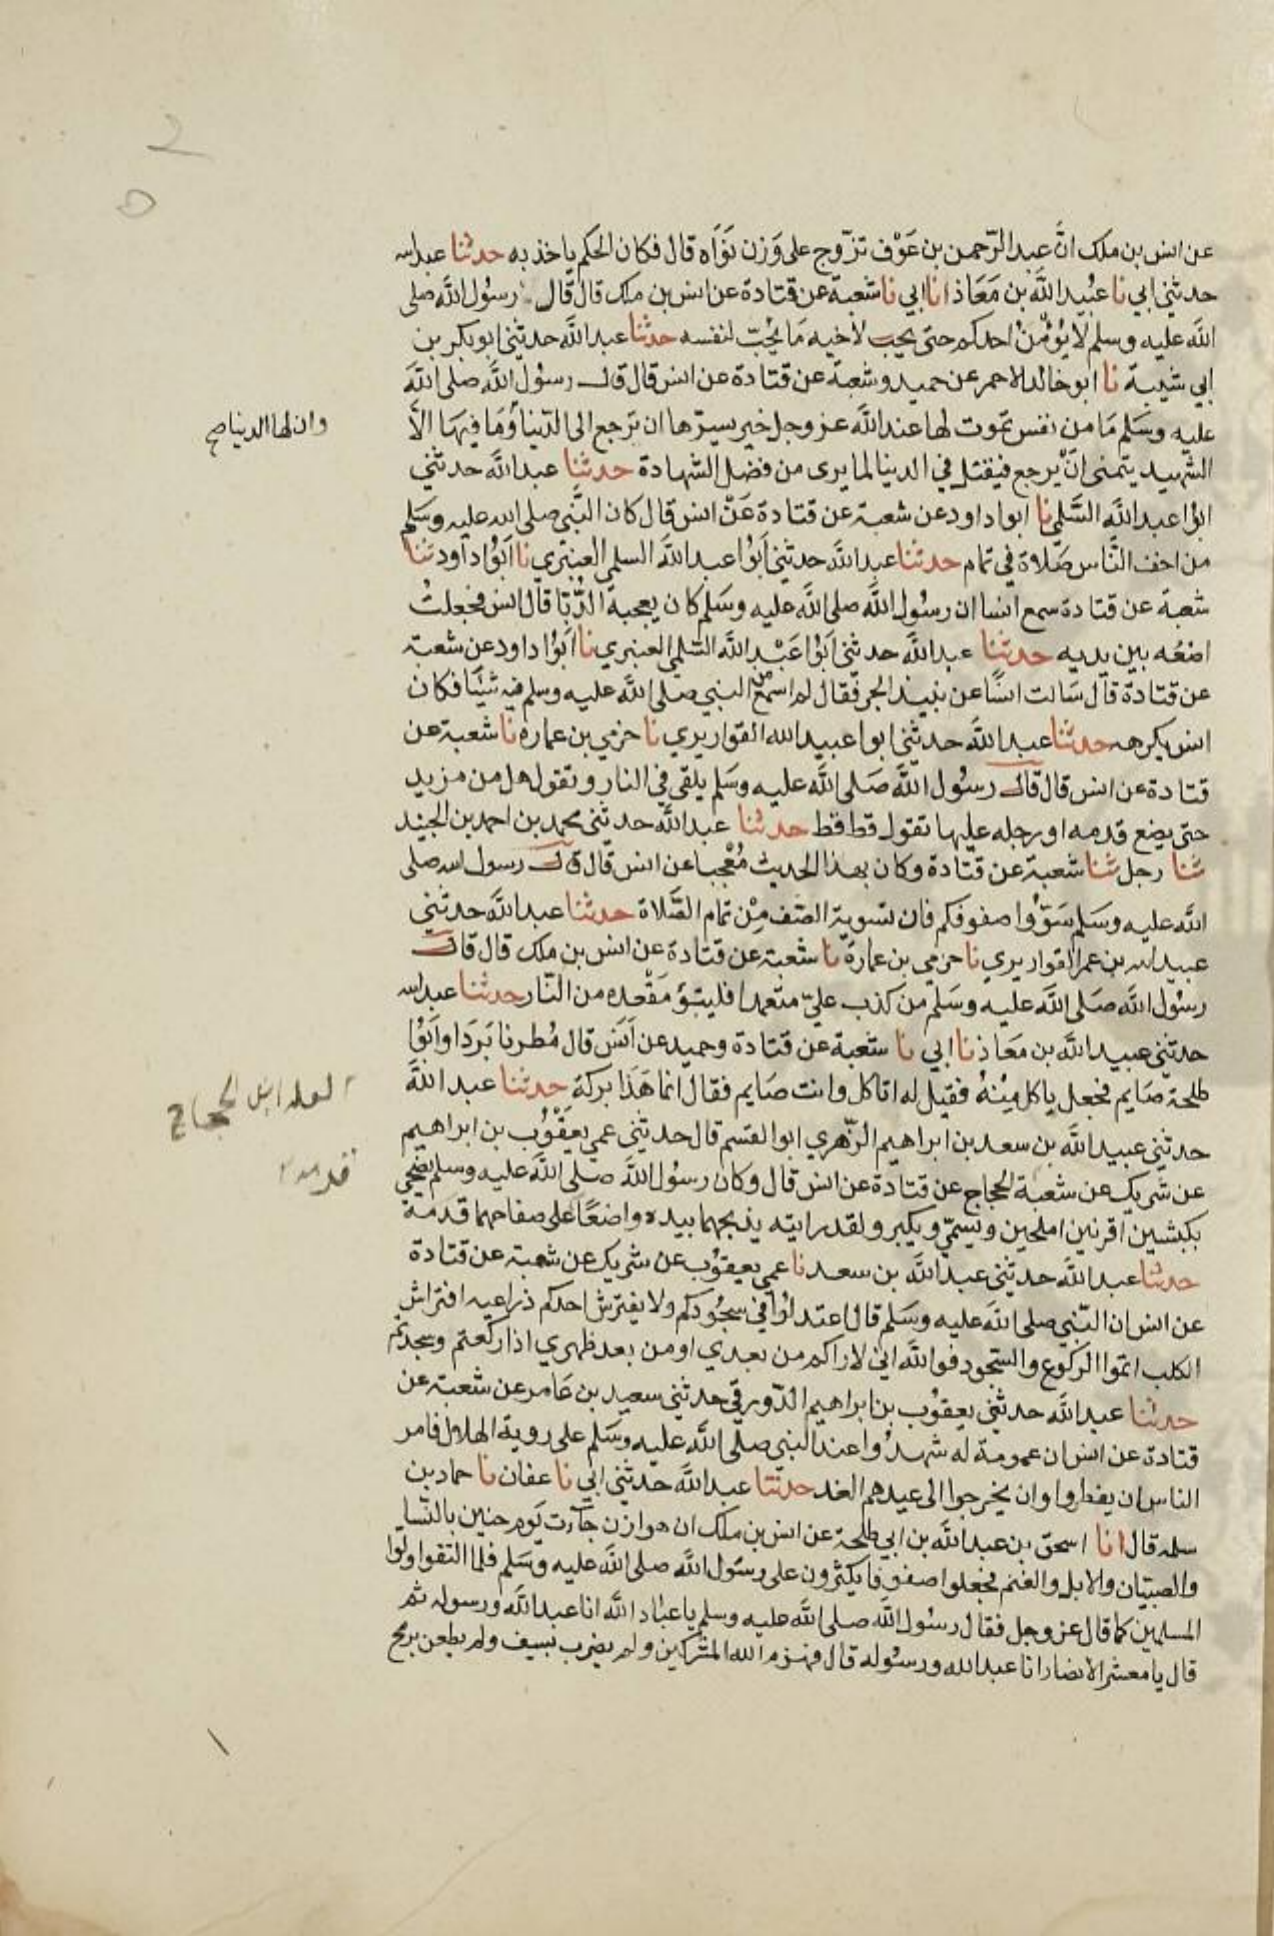 عن انس بن ملك انَّ عبد الرّحمن بن عَوْف تزّوج على وَزن نَوَاه قال فكان الحكم ياخذ به حدثنا عبد الله
حدثني ابي نا عبيد الله بن مَعَاذ انا ابي نا شعبة عن قتادة عن انس بن ملك قال قال رسُول الله صلى
الله عليه وسلم لا يؤمن احدكم حتى يحب لاخيه مَا يُحبّ لنفسه حدثنا عبد الله حدثني ابو بكر بن
ابي شيبة نا ابو خالد الاحمر عن حميد وشعبة عن قتادة عن انس قال قال رسول الله صلى الله
عليه وسَلم مَا من نفس تموت لها عند الله عز وجل خير يسرّها ان ترجع الى الدّنيا وَمَا فيهَا الاَّ
وان لها الدنيا صح
الشهيد يتمنى انْ يرجع فيقتل في الدنيا لما يرى من فضل الشهادة حدثنا عبد الله حدثني
ابوُا عبد الله السَّلمي نا ابوا داود عن شعبة عن قتادة عَنْ انس قال كان النَّبي صلى الله عليه وسَلم
من اخف النَّاس صَلاة في تمام حدثنا عبد الله حدثني اَبوُا عبد الله السلمي العنبري نا اَبوُا داود ثنا
شعبة عن قتادة سمع انسا ان رسُول الله صلى الله عليه وسَلم كان يعجبة الدُّبّا قال انس فجعلتُ
اضعُه بين يديه حدثنا عبد الله حدثني اَبوُا عَبْد الله السّلمي العنبري نا اَبوُا داود عن شعبة
عن قتادة قال سَالت انسًا عن نبيذ الجر فقال لم اسمع من النبي صلى الله عليه وسلم فيه شيئا فكان
انس يكرهه حدثنا عبد الله حدثني ابوا عبيد الله القواريري نا حرمي بن عماره نا شعبة عن
قتادة عن انس قال قال رسُول الله صَلى الله عليه وسَلم يلقى في النار وتقول هل من مزيد
حتى يضع قدمه او رجله عليها تقول قط قط حدثنا عبد الله حدثني محمد بن احمد بن الجنيد
ثنا رجل ثنا شعبة عن قتادة وكان بهذا الحديث مُعْجبا عن انس قال قال رسول الله صلى
الله عليه وسَلم سَوّوا صفوفكم فان تسوية الصّف مِنْ تمام الصَّلاة حدثنا عبد الله حدثني
عبيد الله بن عمر القواريري نا حرمي بن عمارةَ نا شعبة عن قتادة عن انس بن ملك قال قال
رسُول الله صَلى الله عليه وسَلم من كذب عليّ متعمدا فليتبؤ مَقْعده من النّار حدثنا عبد الله
حدثني عبيد الله بن مَعَاذ نا ابي نا شعبة عن قتادة وحميد عن اَنَس قال مُطرنا بَرَدَا وابوُا
طلحة صَايم فجعل ياكل مِنْهُ فقيل له اتاكل وانت صَايم فقال انما هَذا بركة حدثنا عبد الله
العله ابن الحجاج
حدثني عبيد الله بن سعد بن ابراهيم الزّهري ابو القسم قال حدثني عمي يعقوُب بن ابراهيم
عن شريك عن شعبة الحجاج عن قتادة عن انس قال وكان رسُول الله صلى الله عليه وسلم يضحي
بكبشين اقرنين املحين ويسَمّي ويكبر ولقد رايته يذبحهما بيده واضعًا على صفاحهما قدمه
حدثنا عبد الله حدثني عبد الله بن سعد نا عمي يعقوُب عن شريك عن شعبة عن قتادة
عن انس ان النَّبي صلى الله عليه وسَلم قال اعتدلوُا في سجُودكم ولا يفترش احدكم ذراعيه افتراش
الكلب اتموا الركوع والسّجود فوالله انيّ لاراكم من بعدي او من بعد ظهري اذا ركعتم وسجدتم
حدثنا عبد الله حدثني يعقوُب بن ابراهيم الدّورقي حدثني سعيد بن عَامر عن شعبة عن
قتادة عن انس ان عمومة له شهدُوا عند النبي صلى الله عليه وسَلم على روية الهلال فامر
الناس ان يفطروا وان يخرجوا الى عيدهم الغد حدثنا عبد الله حدثني ابي نا عفان نا حماد بن
سلمه قال انا اسحق بن عبد الله بن ابي طلحة عن انس بن ملك ان هوازن جآءت يَوم حنين بالنّسا
والصبيان والابل والغنم فجعلوا صفوفا يكثرون على رسُول الله صلى الله عليه وسَلم فلما التقوا ولوا
المسلمين كما قال عز وجل فقال رسُول الله صلى الله عليه وسلم يا عباد الله انا عبد الله ورسوله ثم
قال يا معشر الانصار انا عبد الله ورسُوله قال فهزم الله المشركين ولم يضرب بسيف ولم يطعن برمح